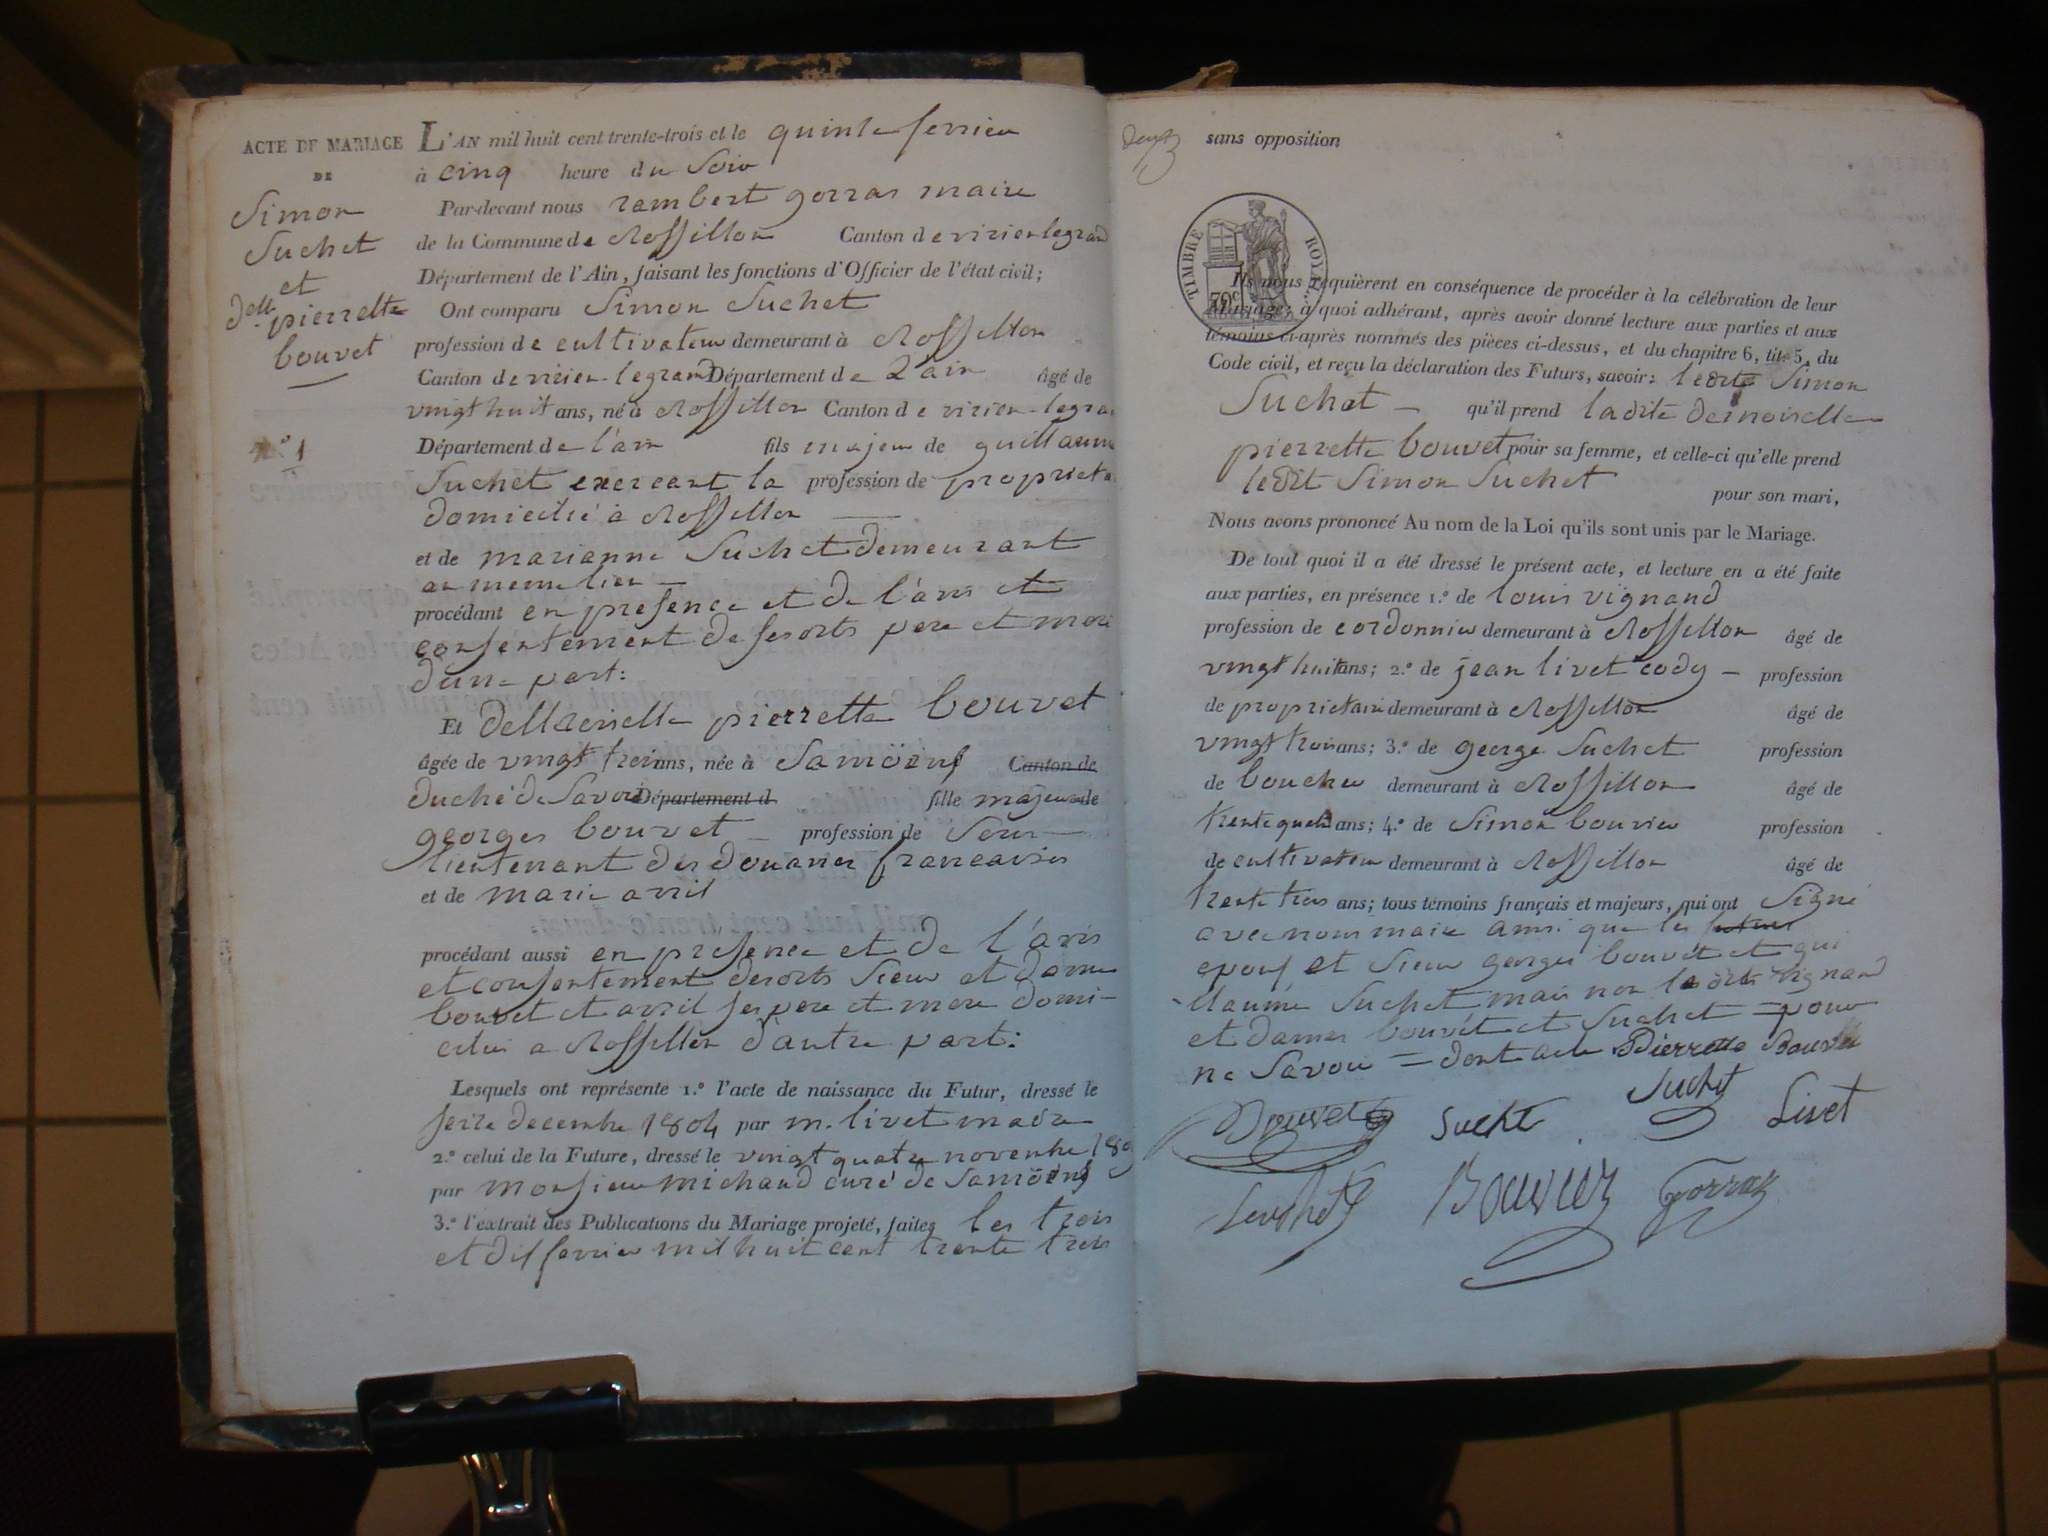 ACTE DE MARIAGE
DE
Simon
Suchet
et
delle pierrette
bouvet
n.º 1
L'AN mil huit cent trente-trois et le quinze fevrier
à cinq heure du Soir
Par-devant nous rambert gorras maire
de la Commune de Rossillon Canton de virieu legrand
Département de l'Ain, faisant les fonctions d'Officier de l'état civil;
Ont comparu Simon Suchet
profession de cultivateur demeurant à Rossillon
Canton de virieu-legrand Département de L'ain âgé de
vingt huit ans, né à Rossillon Canton de virieu-legran
Département de l'ain fils majeur de guillaume
Suchet exercant la profession de proprieta
domicilié à Rossillon
et de marianne Suchet demeurant
au meme lieu
procédant en presence et de l'avis et
consentement de sesdits pere et mere
dune part:
Et dellmoiselle pierrette bouvet
âgée de vingt trois ans, née à Samöens Canton de
duché de Savoie Département d fille majeure de
georges bouvet profession de Sous
lieutenant des douanes francaises
et de marie avril
procédant aussi en présence et de l'avis
et consentement desdits sieur et dame
bouvet et avril ses pere et mere domi-
cilies a Rossillon d'autre part:
Lesquels ont représente 1.º l'acte de naissance du Futur, dressé le
seize decembre 1804 par m. livet maire
2.º celui de la Future, dressé le vingt quatre novembre 180
par monsieur michaud curé de Samöens
3.º l'extrait des Publications du Mariage projeté, faites les trois
et dix fevrier mil huit cent trente trois
deux
sans opposition
TIMBRE ROYAL
70c
Ils nous requièrent en conséquence de procéder à la célébration de leur
Mariage; à quoi adhérant, après avoir donné lecture aux parties et aux
témoins ci-après nommés des pièces ci-dessus, et du chapitre 6, tit. 5, du
Code civil, et reçu la déclaration des Futurs, savoir: ledit Simon
Suchet qu'il prend ladite demoiselle
pierrette bouvet pour sa femme, et celle-ci qu'elle prend
ledit Simon Suchet pour son mari,
Nous avons prononcé Au nom de la Loi qu'ils sont unis par le Mariage.
De tout quoi il a été dressé le présent acte, et lecture en a été faite
aux parties, en présence 1.º de louis vignand
profession de cordonnier demeurant à Rossillon âgé de
vingt huit ans; 2.º de jean livet cody profession
de proprietaire demeurant à Rossillon âgé de
vingt trois ans; 3.º de george Suchet profession
de boucher demeurant à Rossillon âgé de
trente quatre ans; 4.º de Simon bouvier profession
de cultivateur demeurant à Rossillon âgé de
trente trois ans; tous témoins français et majeurs, qui ont signé
avec nous maire ainsi que les futurs
epoux et sieur georges bouvet et gui
llaume Suchet mais non ledit vignand
et dames bouvet et Suchet = pour
ne Savoir = dont acte Pierrette Bouvet
Bouvet Suchet Suchet Livet
Suchet Bouvier Gorraz